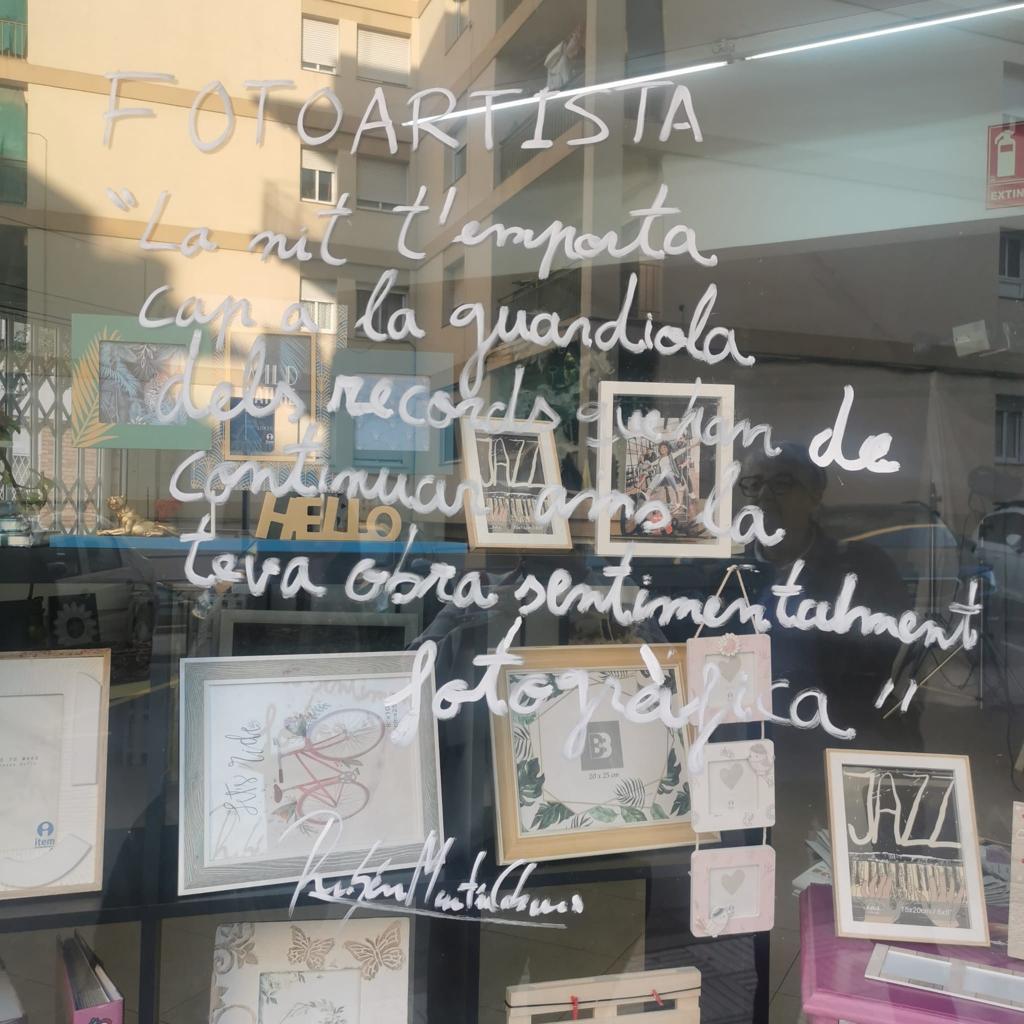 FOTOARTISTA
"La nit t'emporta
cap a la guardiola
dels records que han de
continuar amb la
teva obra sentimentalment
fotogràfica"
EXTIN
HELLO
JAZZ
let's ride
B
20 x 25 cm
item
JAZZ
15x20cm/6x8"